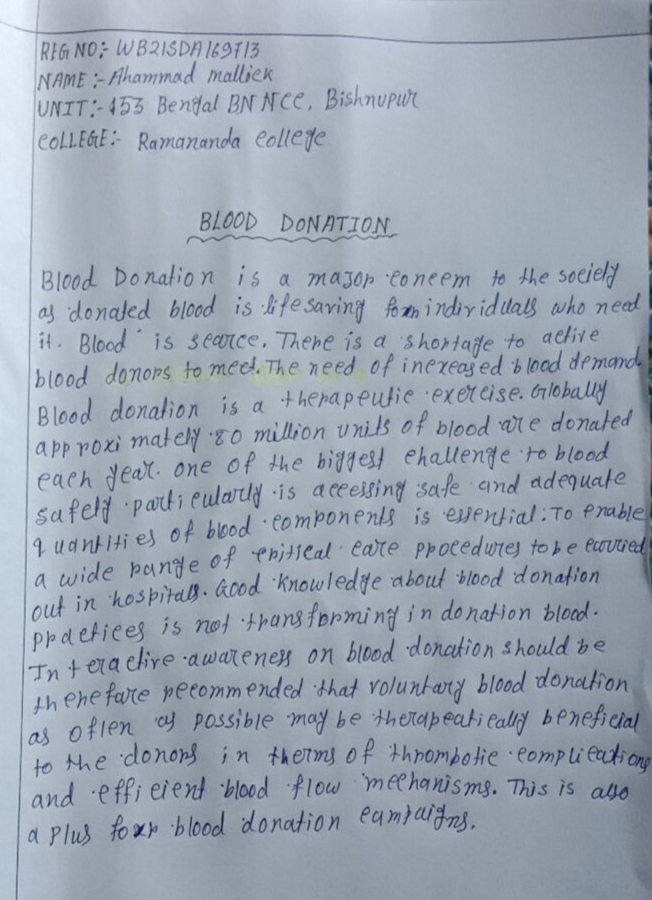 REG NO:- WB21SDA169713
NAME :- Ahammad mallick
UNIT:- 453 Bengal BN NCC, Bishnupur
COLLEGE:- Ramananda college
BLOOD DONATION
Blood Donation is a major concern to the society
as donated blood is life saving for individuals who need
it. Blood is scarce. There is a shortage to active
blood donors to meet. The need of increased blood demand
Blood donation is a therapeutic exercise. Globally
approximately 80 million units of blood are donated
each year. one of the biggest challenge to blood
safety particularly is accessing safe and adequate
quantities of blood components is essential. To enable
a wide range of critical care procedures to be carried
out in hospitals. Good knowledge about blood donation
practices is not transforming in donation blood.
Interactive awareness on blood donation should be
therefare recommended that voluntary blood donation
as often as possible may be therapeatically beneficial
to the donors in therms of thrombotic complications
and efficient blood flow mechanisms. This is also
a plus for blood donation campaigns.